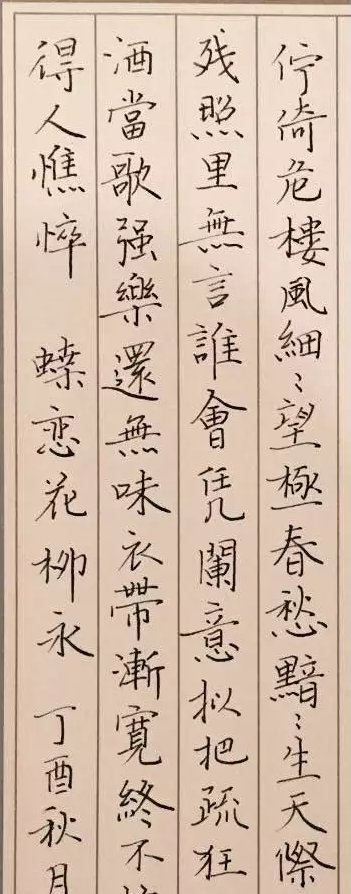 伫倚危樓風細〻望極春愁黯〻生天際
残照里無言誰會凭闌意拟把疏狂
酒當歌强樂還無味衣帶漸寬終不
得人憔悴 蝶恋花柳永 丁酉秋月